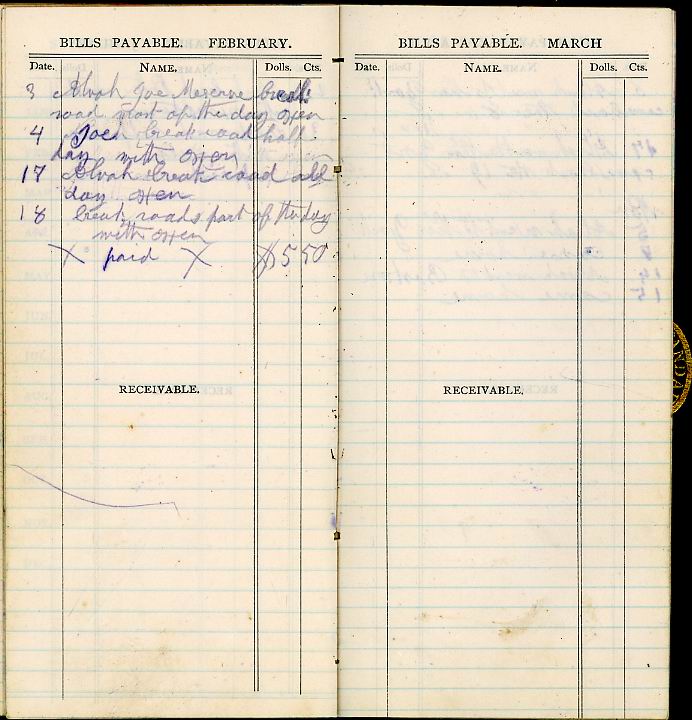 BILLS PAYABLE. FEBRUARY.
Date. NAME. Dolls. Cts.
3 Alvah Joe Meserve break
road part of the day oxen
4 Joe break road half
day with oxen
17 Alvah break road all
day oxen
18 break roads part of the day
with oxen
X paid X $5 50
RECEIVABLE.
BILLS PAYABLE. MARCH
Date. NAME. Dolls. Cts.
RECEIVABLE.
NDAR